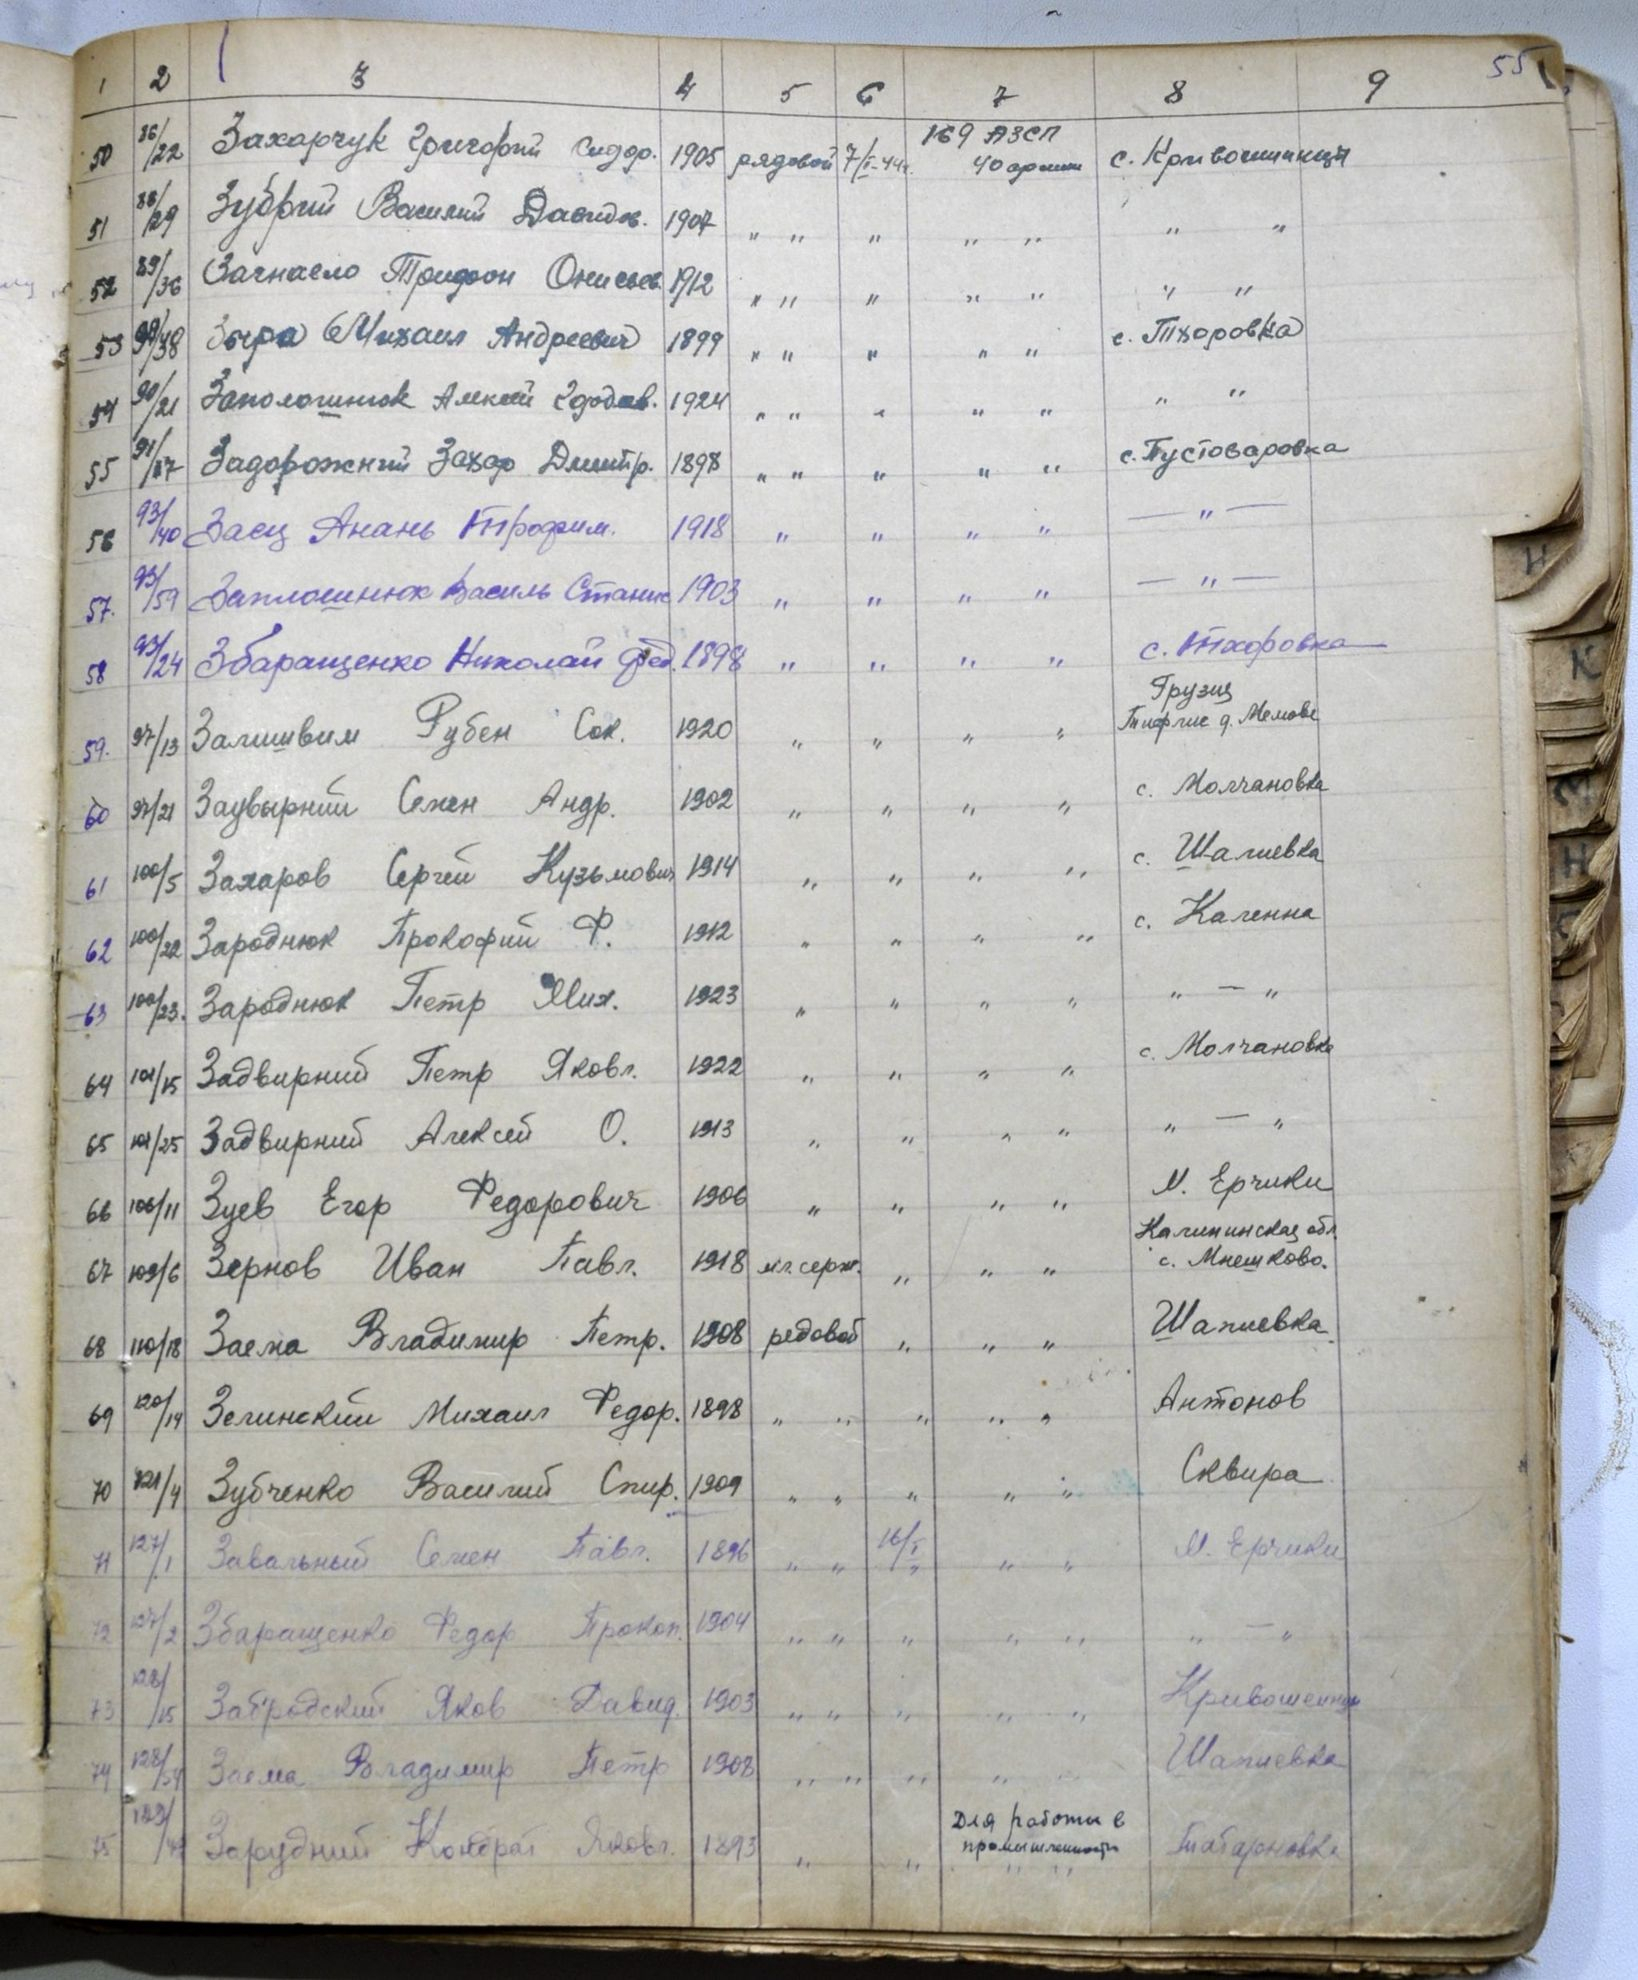 55
1 2 3 4 5 6 7 8 9
50 86/22 Захарчук Григорий Сидор. 1905 рядовой 7/I-44г. 169 АЗСП 40 армии с. Кривошиинци
51 88/29 Зубрий Василий Давидов. 1907 " " " " " " "
52 89/36 Трифон Онисьев. 1912 " " " " " " "
53 /38 Михаил Андреевич 1899 " " " " " с. Тхоровка
54 90/21 Заполошнюк Алексей 1924 " " " " " " "
55 91/17 Задорожний Захар Дмитр. 1898 " " " " " с. Пустоваровка
56 93/40 Заец Анань Трофим. 1918 " " " " — " —
57. 93/59 Заплошнюк Василь Станис 1903 " " " " — " —
58 93/24 Збаращенко Николай Фед. 1898 " " " " с. Тхоровка
59. 97/13 Залишвим Рубен Сок. 1920 " " " " Грузия Тифлис д.
60 97/21 Заувырний Семен Андр. 1902 " " " " с. Молчановка
61 100/5 Захаров Сергей Кузьмович 1914 " " " " с. Шалиевка
62 100/22 Зароднюк Прокофий Ф. 1912 " " " " с. Каленна
63 100/23. Зароднюк Петр Мих. 1923 " " " " " — "
64 101/15 Задвирний Петр Яковл. 1922 " " " " с. Молчановка
65 101/25 Задвирний Алексей О. 1913 " " " " " — "
66 106/11 Зуев Егор Федорович 1906 " " " " М. Ерчики
67 109/6 Зернов Иван Павл. 1918 мл. серж. " " " Калининская обл. с. Мнешково.
68 110/18 Заема Владимир Петр. 1908 редовой " " " Шапиевка
69 120/14 Зелинский Михаил Федор. 1898 " " " " " Антонов
70 121/4 Зубченко Василий Спир. 1909 " " " " " Сквира
71 127/1 Завальный Семен Павл. 1896 " " 16/I " " " М. Ерчики
72 127/2 Збаращенко Федор Прокоп. 1904 " " " " " " — "
73 128/15 Забродский Яков Давид. 1903 " " " " " Кривошеинци
74 128/54 Заема Владимир Петр 1908 " " " " " Шапиевка
75 129/ Зарудний Кондрат Яковл. 1893 " " Для работы в промышленности " " "
Н
К
Н